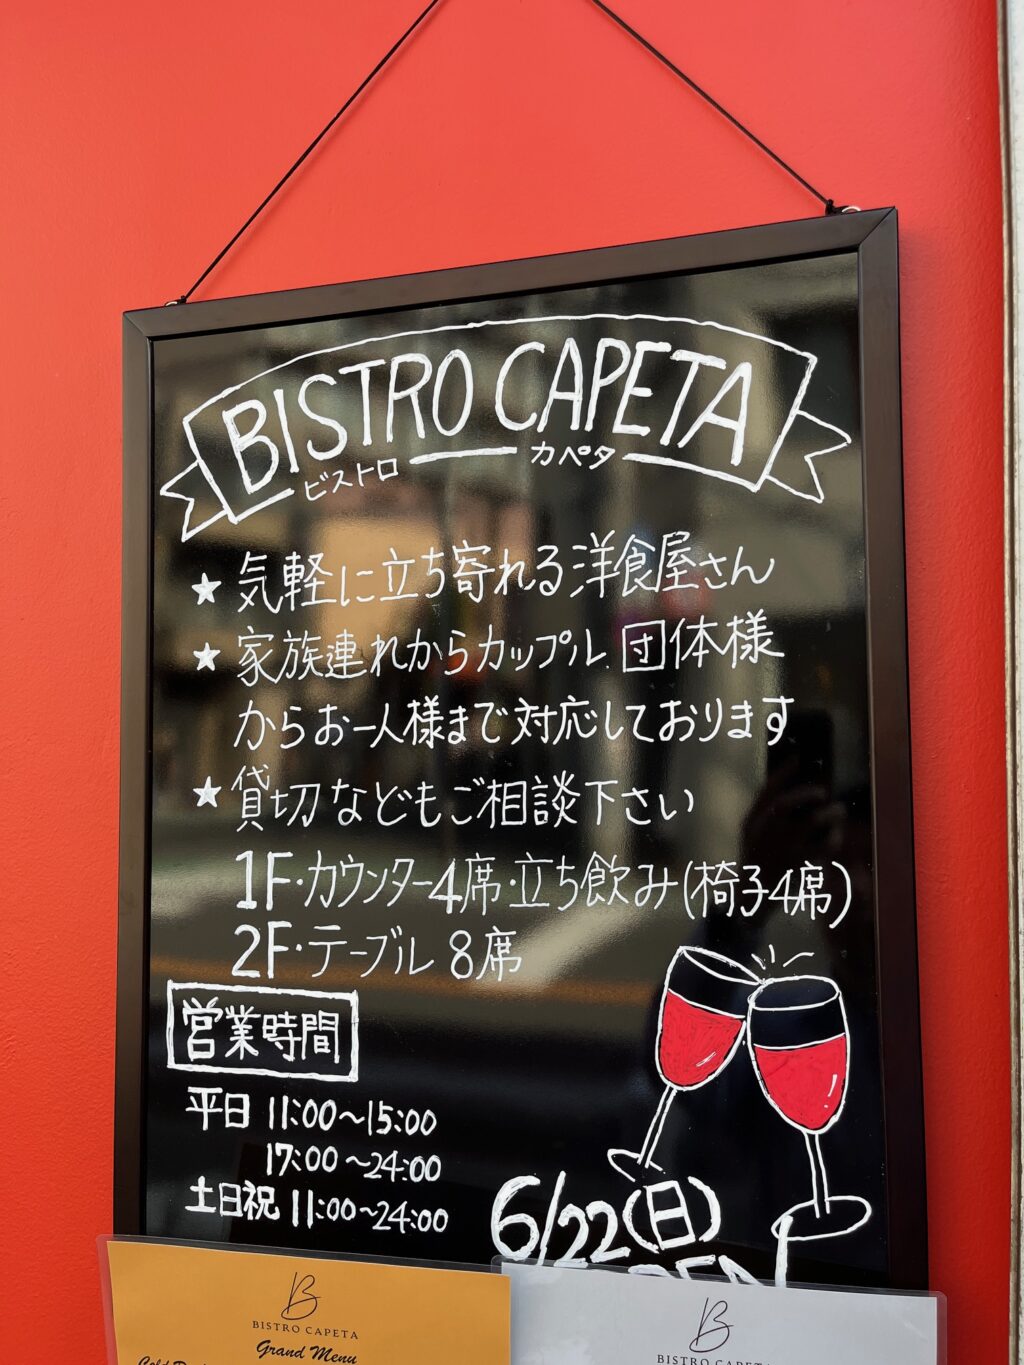 BISTRO CAPETA
ビストロ カペタ
★気軽に立ち寄れる洋食屋さん
★家族連れからカップル、団体様
からお一人様まで対応しております
★貸切などもご相談下さい
1F・カウンター4席・立ち飲み(椅子4席)
2F・テーブル 8席
営業時間
平日 11:00~15:00
17:00~24:00
土日祝 11:00~24:00
6/22(日)
B
BISTRO CAPETA
Grand Menu
B
BISTRO CAPETA